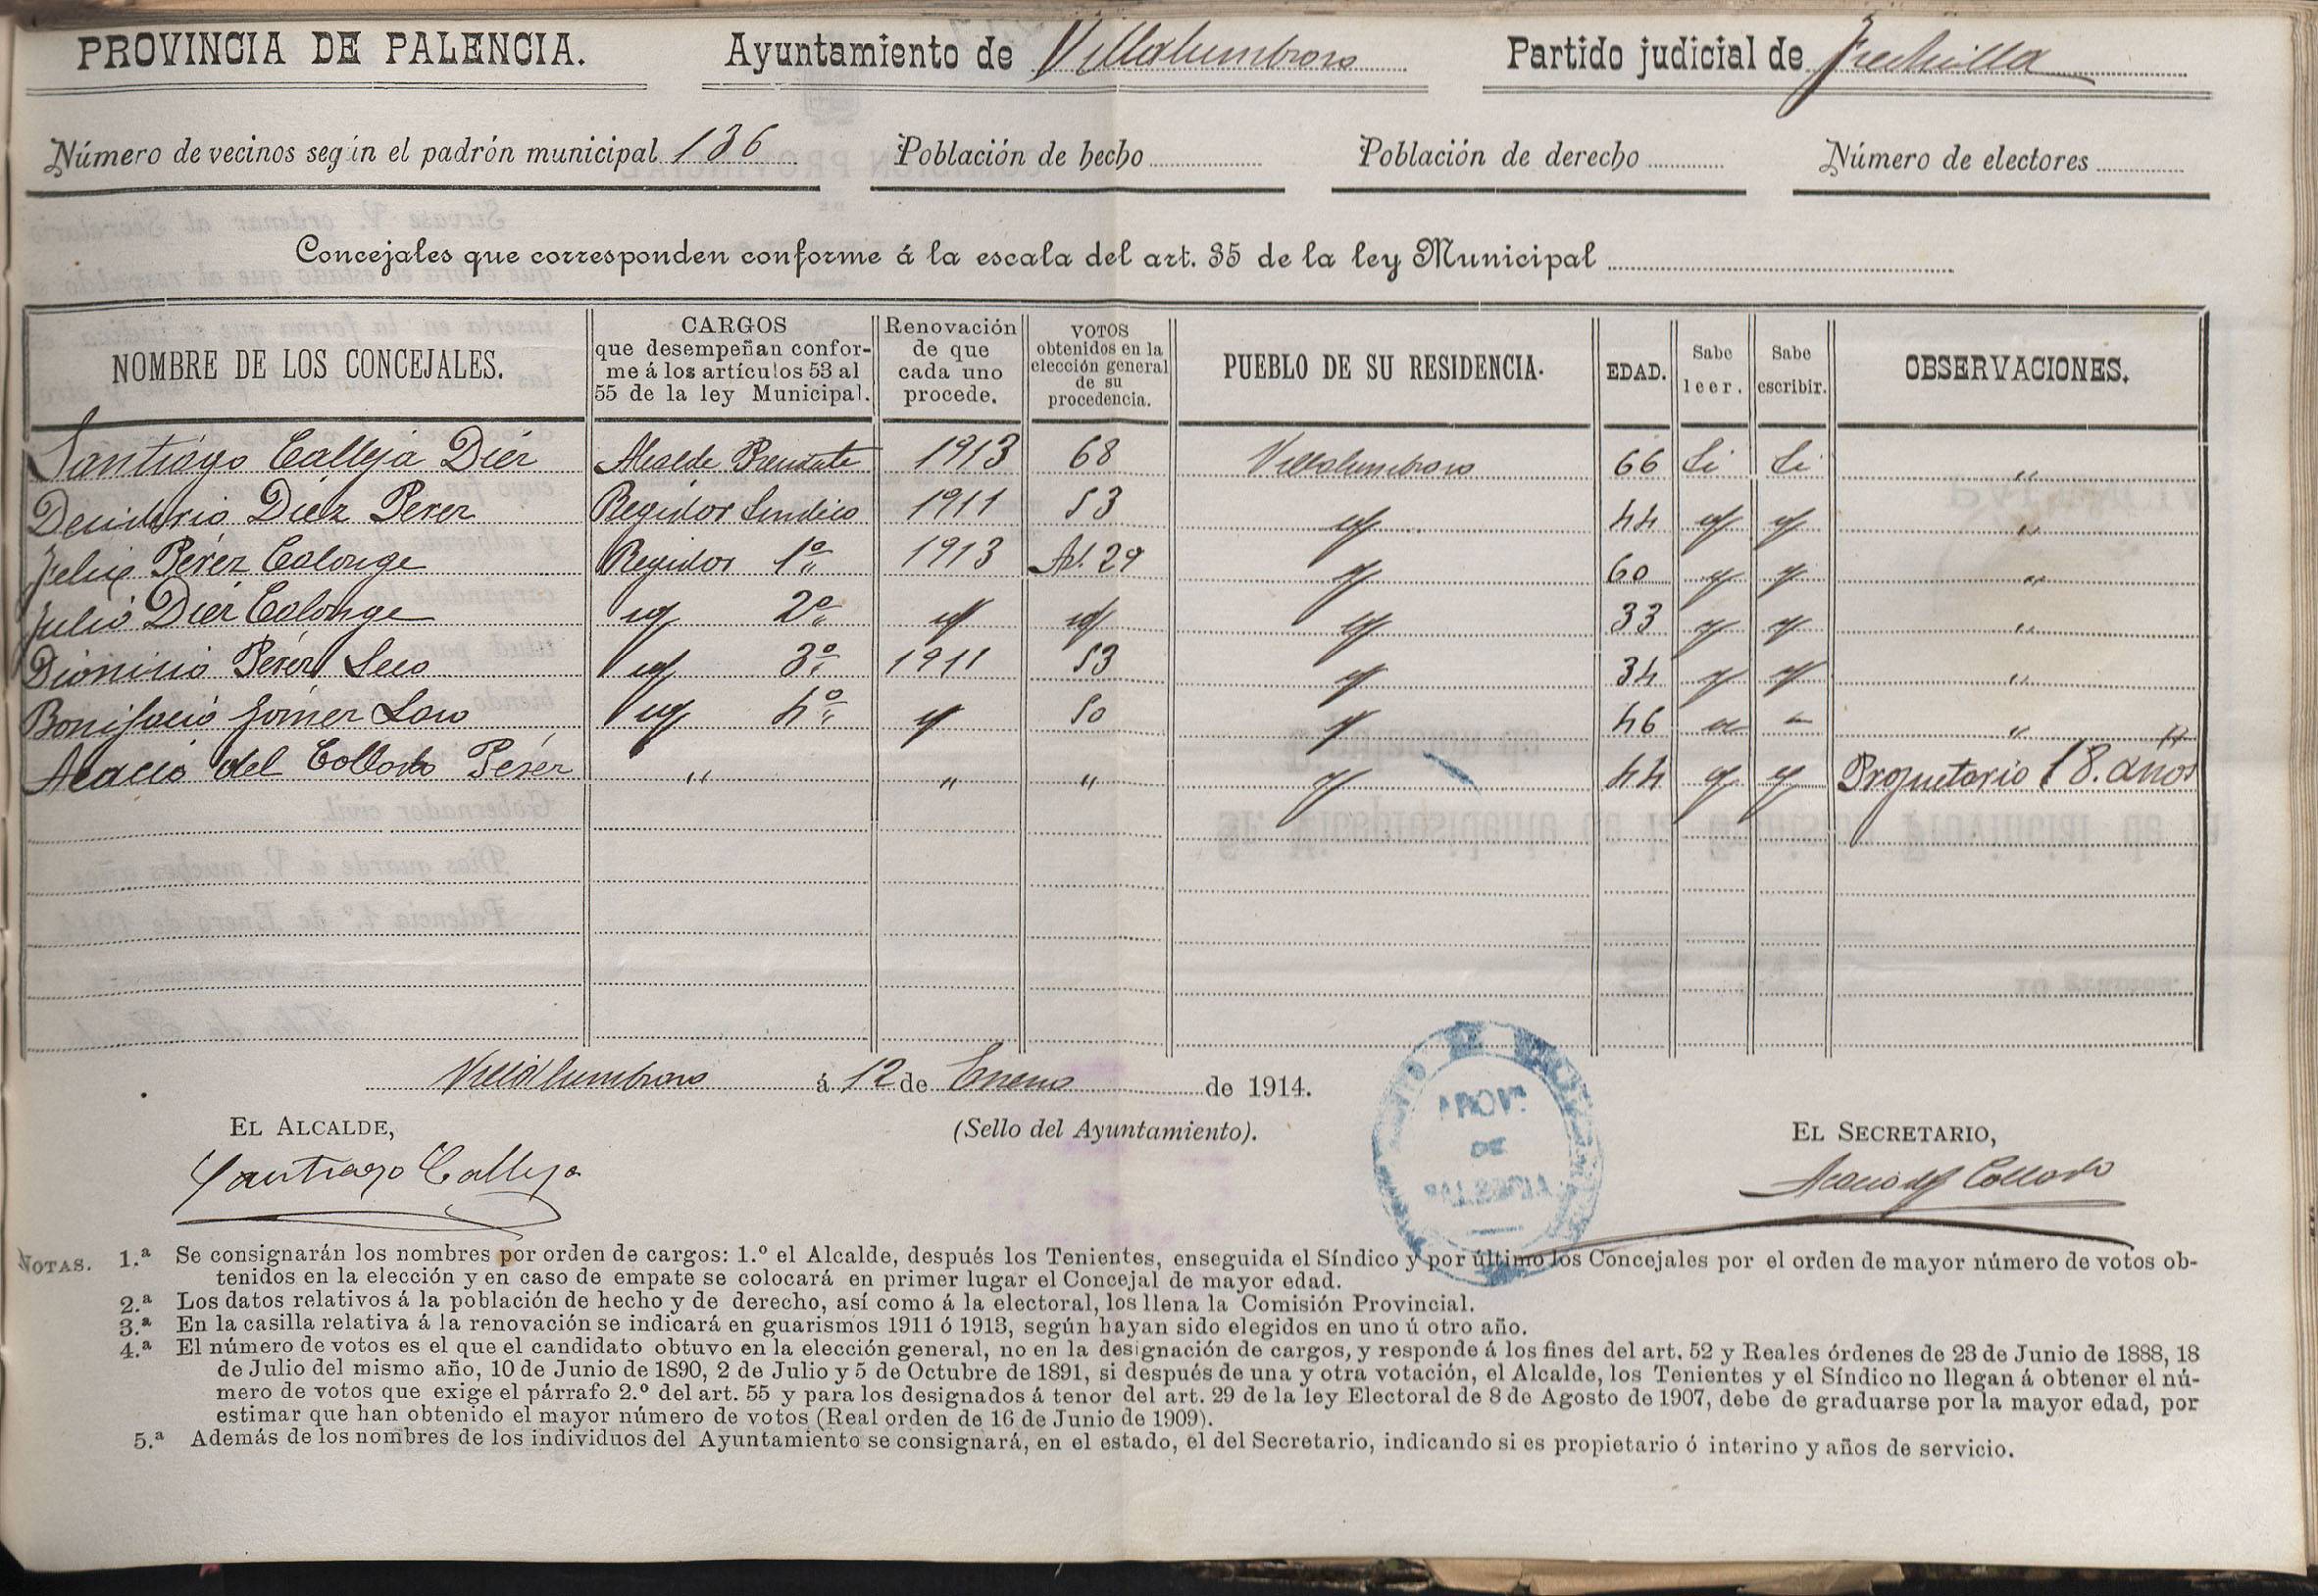 PROVINCIA DE PALENCIA. Ayuntamiento de Villalumbroso Partido judicial de Frechilla
Número de vecinos según el padrón municipal 136 Población de hecho Población de derecho Número de electores
Concejales que corresponden conforme á la escala del art. 35 de la ley Municipal
NOMBRE DE LOS CONCEJALES. CARGOS que desempeñan conforme á los artículos 53 al 55 de la ley Municipal. Renovación de que cada uno procede. VOTOS obtenidos en la elección general de su procedencia. PUEBLO DE SU RESIDENCIA. EDAD. Sabe leer. Sabe escribir. OBSERVACIONES.
Santiago Calleja Diez Alcalde Presidente 1913 68 Villalumbroso 66 Si Si "
Desiderio Diez Perez Regidor Sindico 1911 53 id 44 id id "
Felix Pérez Calonge Regidor 1º 1913 Art. 29 id 60 id id "
Julio Diez Calonge id 2º id id id 33 id id "
Dionisio Pérez Seco id 3º 1911 53 id 34 id id "
Bonifacio Gómez id 4º id 50 id 46 "
Acacio del Collado Pérez " " " id 44 id id Propietario 18. años
Villalumbroso á 12 de Enero de 1914.
EL ALCALDE, (Sello del Ayuntamiento). EL SECRETARIO,
Santiago Calleja Acacio del Collado
PROV. DE PALENCIA
NOTAS. 1.ª Se consignarán los nombres por orden de cargos: 1.º el Alcalde, después los Tenientes, enseguida el Síndico y por último los Concejales por el orden de mayor número de votos ob-
tenidos en la elección y en caso de empate se colocará en primer lugar el Concejal de mayor edad.
2.ª Los datos relativos á la población de hecho y de derecho, así como á la electoral, los llena la Comisión Provincial.
3.ª En la casilla relativa á la renovación se indicará en guarismos 1911 ó 1913, según hayan sido elegidos en uno ú otro año.
4.ª El número de votos es el que el candidato obtuvo en la elección general, no en la designación de cargos, y responde á los fines del art. 52 y Reales órdenes de 23 de Junio de 1888, 18
de Julio del mismo año, 10 de Junio de 1890, 2 de Julio y 5 de Octubre de 1891, si después de una y otra votación, el Alcalde, los Tenientes y el Síndico no llegan á obtener el nú-
mero de votos que exige el párrafo 2.º del art. 55 y para los designados á tenor del art. 29 de la ley Electoral de 8 de Agosto de 1907, debe de graduarse por la mayor edad, por
estimar que han obtenido el mayor número de votos (Real orden de 16 de Junio de 1909).
5.ª Además de los nombres de los individuos del Ayuntamiento se consignará, en el estado, el del Secretario, indicando si es propietario ó interino y años de servicio.